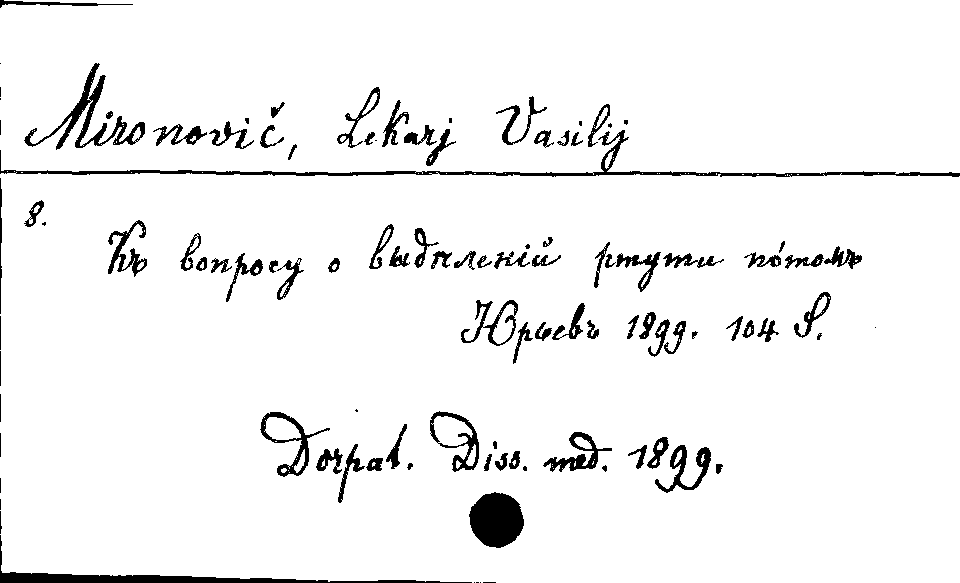 Mironovič, Lekarj Vasilij
8.
Къ вопросу о выдѣленій ртути пóтомъ
Юрьевъ 1899. 104 S.
Dorpat. Diss. med. 1899.